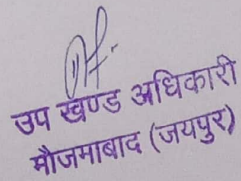 उप खण्ड अधिकारी
मौजमाबाद (जयपुर)